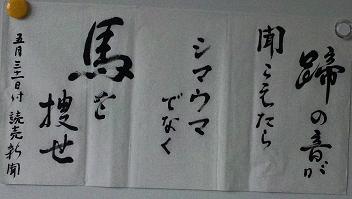 蹄の音が
聞こえたら
シマウマ
でなく
馬を
捜せ
五月三十一日付 読売新聞